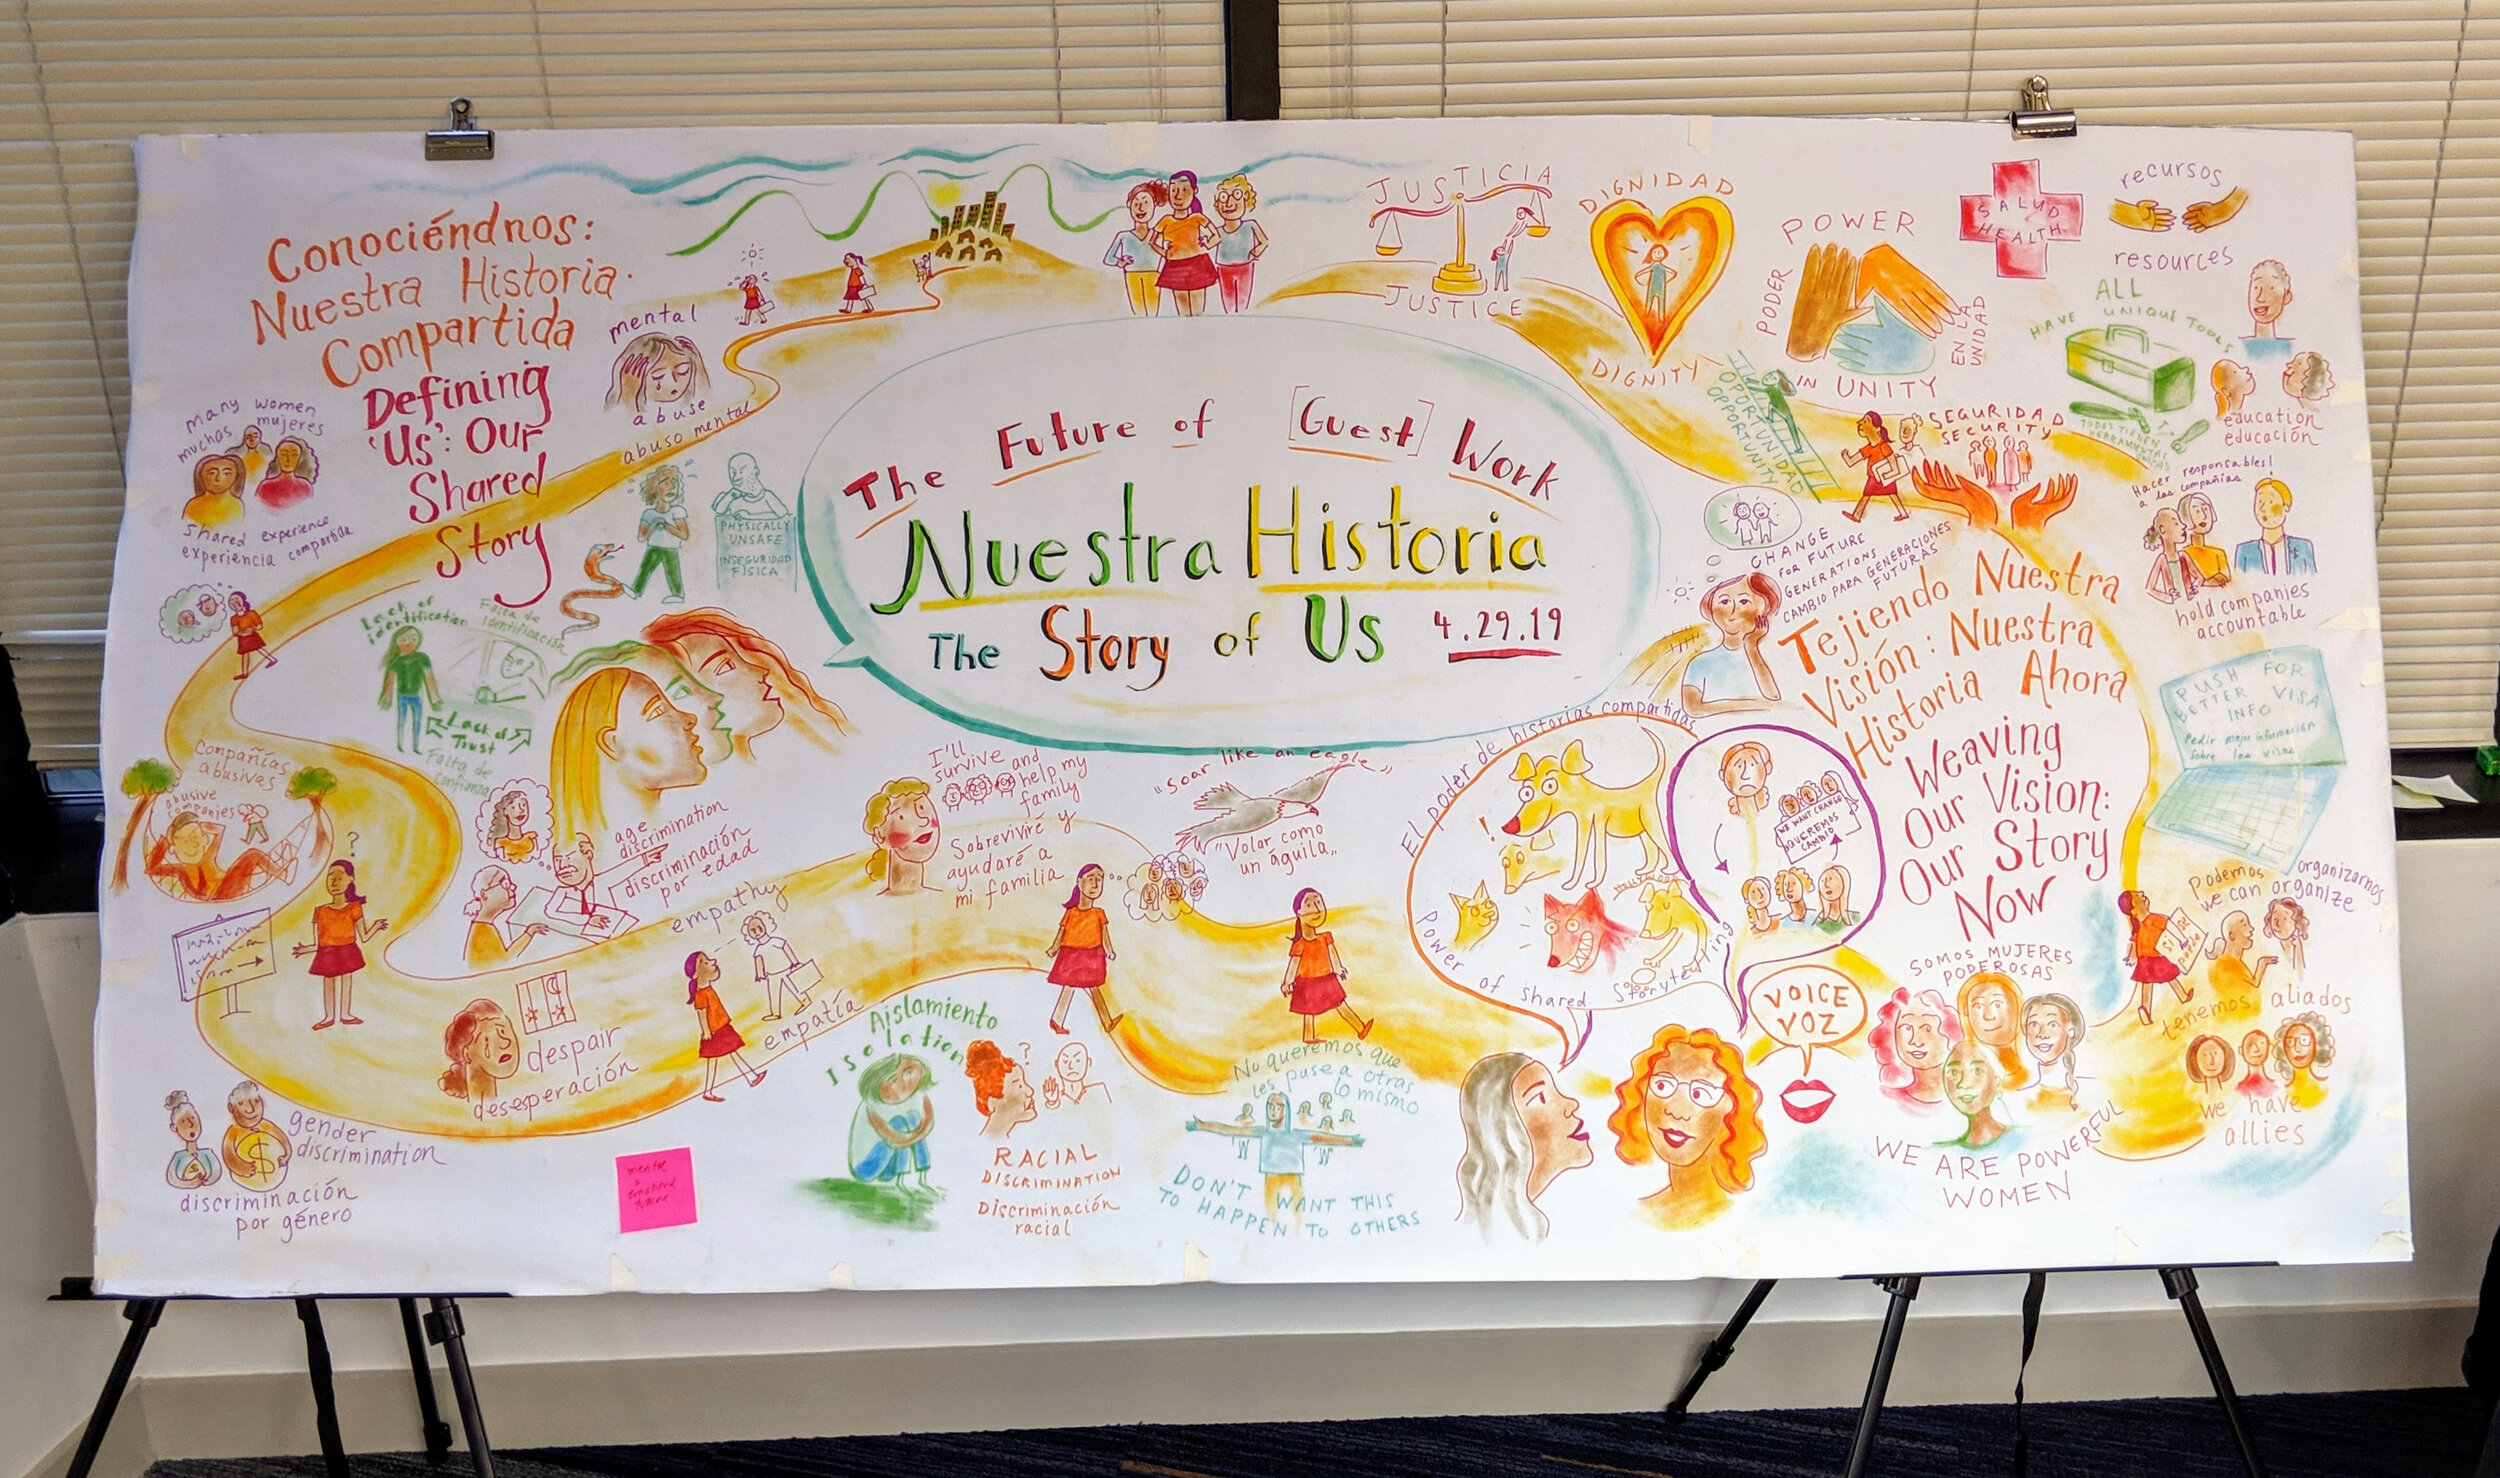 Conociéndnos:
Nuestra Historia
Compartida
Defining
'Us': Our
Shared
Story
many women
muchas mujeres
shared experience
experiencia compartida
mental
abuse
abuso mental
PHYSICALLY
UNSAFE
INSEGURIDAD
FÍSICA
Lack of
identification
Falta de
identificación
Lack of
Trust
Falta de
confianza
Compañías
abusivas
abusive
companies
?
age
discrimination
discriminación
por edad
empathy
empatía
despair
desesperación
gender
discrimination
discriminación
por género
mental
&
emotional
The Future of [Guest] Work
Nuestra Historia
The Story of Us 4.29.19
I'll
survive and
help my
family
Sobreviviré y
ayudaré a
mi familia
"Soar like an eagle"
"Volar como
un águila"
Aislamiento
Isolation
?
RACIAL
DISCRIMINATION
Discriminación
racial
No queremos que
les pase a otras
lo mismo
DON'T WANT THIS
TO HAPPEN TO OTHERS
El poder de historias compartidas
!
Power of shared storytelling
WE WANT CHANGE
QUEREMOS
CAMBIO
VOICE
VOZ
JUSTICIA
JUSTICE
DIGNIDAD
DIGNITY
POWER
IN UNITY
PODER
EN LA
UNIDAD
SALUD
HEALTH
recursos
resources
OPORTUNIDAD
OPPORTUNITY
SEGURIDAD
SECURITY
ALL
HAVE UNIQUE TOOLS
TODOS TIENEN
HERRAMIENTAS
ÚNICAS
education
educación
Hacer responsables!
a las compañías
hold companies
accountable
CHANGE
FOR FUTURE
GENERATIONS
CAMBIO PARA GENERACIONES
FUTURAS
Tejiendo Nuestra
Visión: Nuestra
Historia Ahora
Weaving
Our Vision:
Our Story
Now
PUSH FOR
BETTER VISA
INFO
Pedir mejor información
sobre las visas
Podemos organizarnos
we can organize
Si se
puede
SOMOS MUJERES
PODEROSAS
WE ARE POWERFUL
WOMEN
tenemos aliados
we have
allies